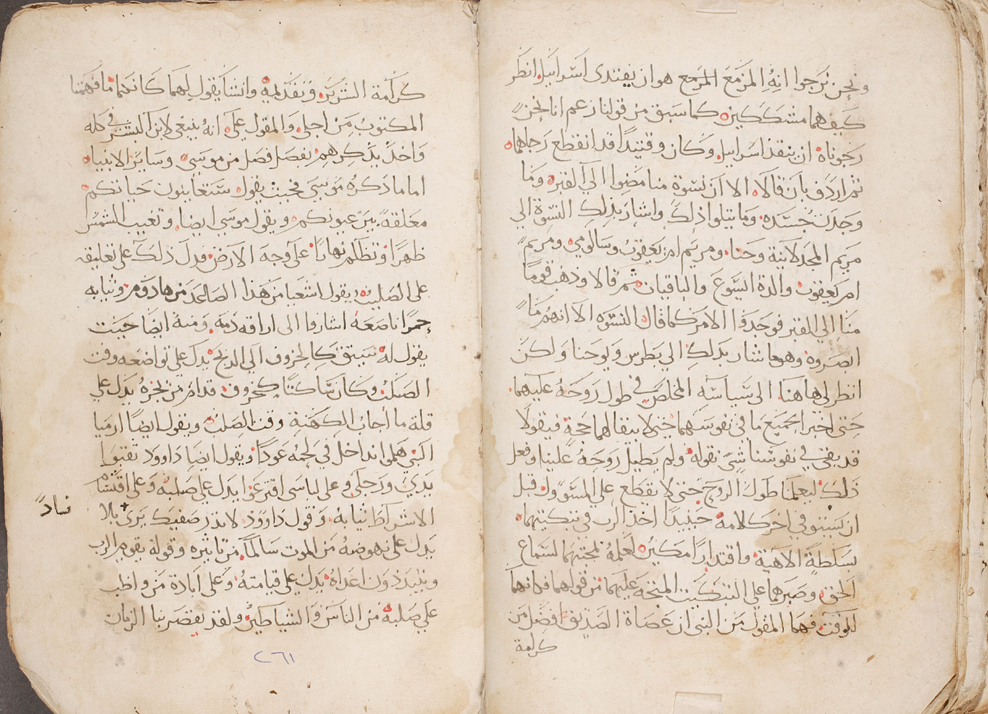 ونحن نرجوا انه المزمع المزمع هو ان يفتدى اسراييل انظر
كيف هما مشككين كما سبق من قولنا زعم انا نحن
رجوناه ان ينقذ اسراييل وكان وقتيذ قد انقطع رجاهما
ثم اردف بان قالاه الا ان نسوة منا مضوا الي القبر وما
وجدن جسده وما يتلوا ذلك واشار بذلك النسوة الي
مريم المجدلانية وحنا ومريم ام يعقوب وسالومي ومريم
ام يعقوب والدة اليسوع والباقيات ثم قالا وذهب قوم
منا الي القبر فوجدوا الامر كما قال النسوه الا انهم ما
بذلك الي بطرس ويوحنا ولكن
انظر لي هاهنا الي سياسة المخلص في طول روحه عليهما
حتي اخبرا بجميع ما في نفوسهما حتي لا يبقا لهما حجة فيقولا
قد بقي في نفوسنا شي نقوله ولم يطيل روحه علينا وفعل
ذلك ليعلمنا طول الروح حتي لا نقطع علي المسوول قبل
ان يستوفي اخر كلامه حينيذ اخذ الرب في تبكيتهما
سلطة الاهية واقتدارا مكين لعلمه بمحبتهما لسماع
الحق وصبرهما علي التبكيت المتجه عليهما من قولهما فانهما
للوقت فهما المقول من النبي ان عصاة الصديق افضل من
كرامة
كرامة الشرير وتقدمه وانشا يقول لهما كانكما ما فهمتما
المكتوب من اجلي والمقول علي انه ينبغي لابن البشر في كله
واخذ يذكرهم بفصل فصل من موسي وساير الانبياء
اما ما ذكره موسي بحيث يقول ستعاينون حياتكم
معلقة بين عيونكم ويقول موسي ايضا وتغيب الشمس
ظهرا وتظلم نهارا علي وجه الارض فدل ذلك علي تعليقه
علي الصليب ويقول اشعيا من هذا الصاعد من هادوم وثيابه
حمرا ناصعه اشارا الي اراقه دمه ومنه ايضا حيث
يقول له سيق كالخروف الي الذبح يدل علي تواضعه وقت
الصلب وكان ساكتا كخروف قدام من يجزه يدل علي
قلة ما اجاب الكهنة وقت الصلب ويقول ايضا ارميا
النبي هلموا ندخل في لحمه عودا ويقول ايضا داوود ثقبوا
يدي ورجلي وعلي لباسي اقترعوا يدل علي صلبه وعلي اقتسام
الاشراط ثيابه وقول داوود لا تدر صفيك يري بلا
يدل علي نهوضه من الموت سالما من تاثيره وقوله يقوم الرب
ويتبدد وا اعداه يدل علي قيامته وعلي ابادة من واظب
علي صلبه من الناس والشياطين ولقد يقصر بنا الزمان
فساد
٢٦١